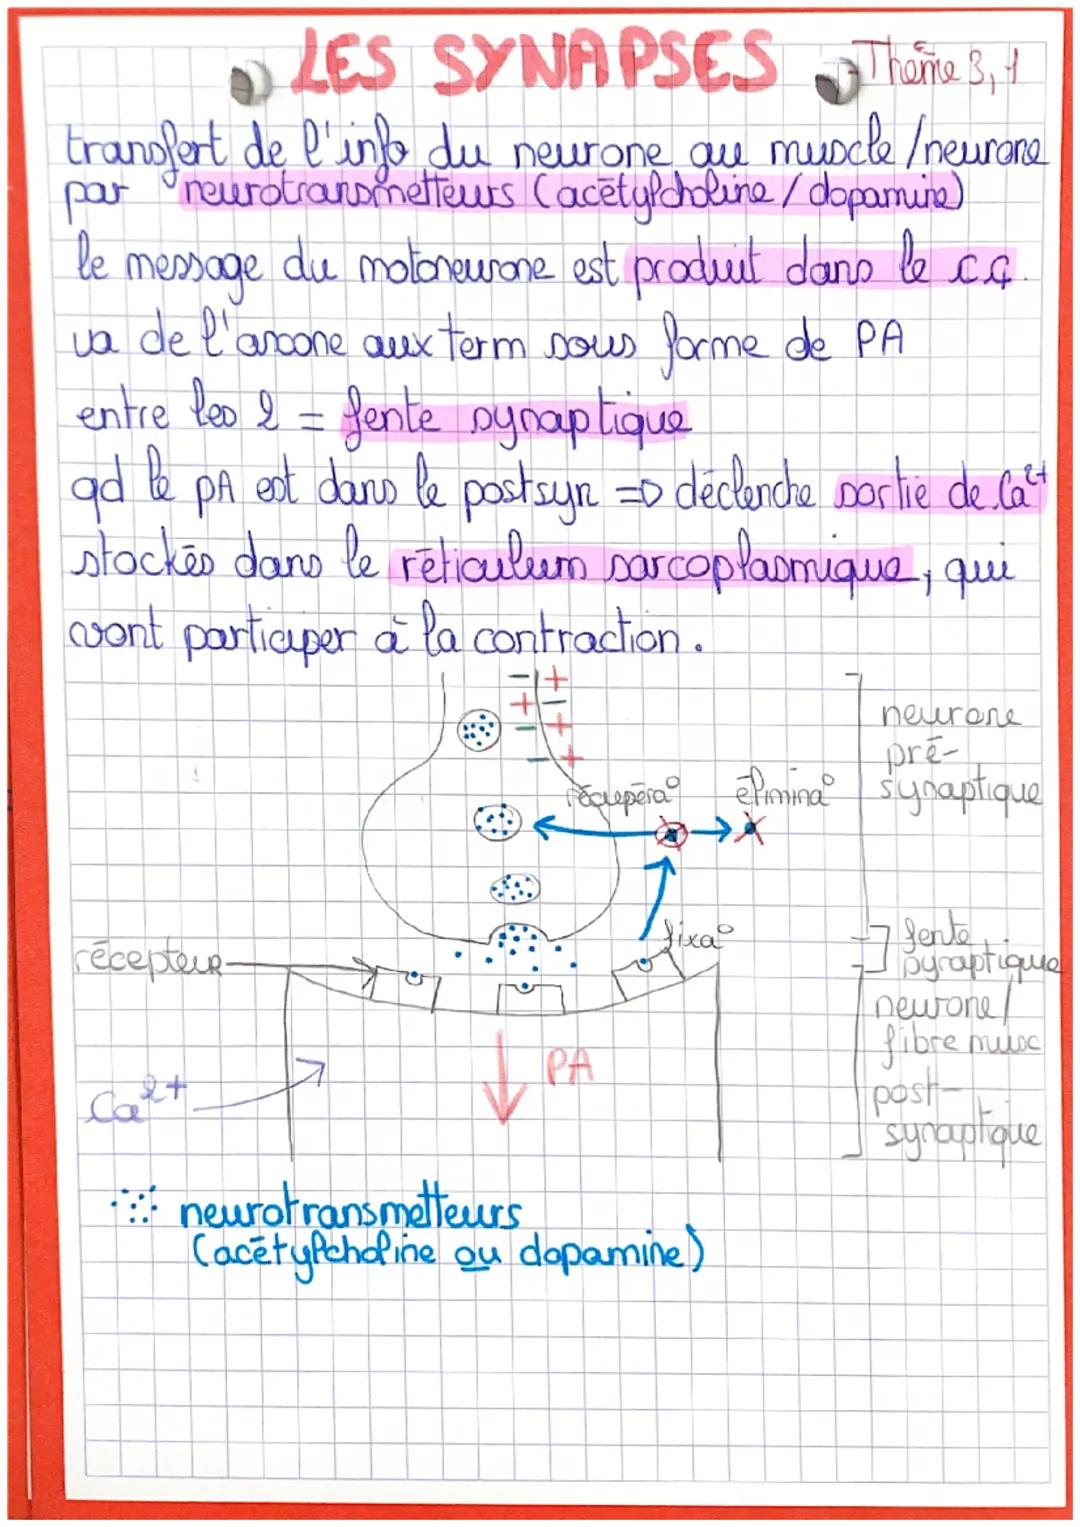 LES SYNAPSES
Thème 3, 1
transfert de l'info du neurone au muscle / neurone
par neurotransmetteurs (acétylcholine / dopamine)
le message du motoneurone est produit dans le c.c.
va de l'axone aux term sous forme de PA
entre les 2 = fente synaptique
qd le PA est dans le postsyn => déclenche sortie de Ca²⁺
stockés dans le réticulum sarcoplasmique, qui
vont participer à la contraction.
- +
+ -
- +
- +
neurone
pré-
synaptique
récupéra° élimina°
fixa°
récepteur
fente
synaptique
neurone /
fibre musc
post-
synaptique
PA
Ca²⁺
neurotransmetteurs
(acétylcholine ou dopamine)